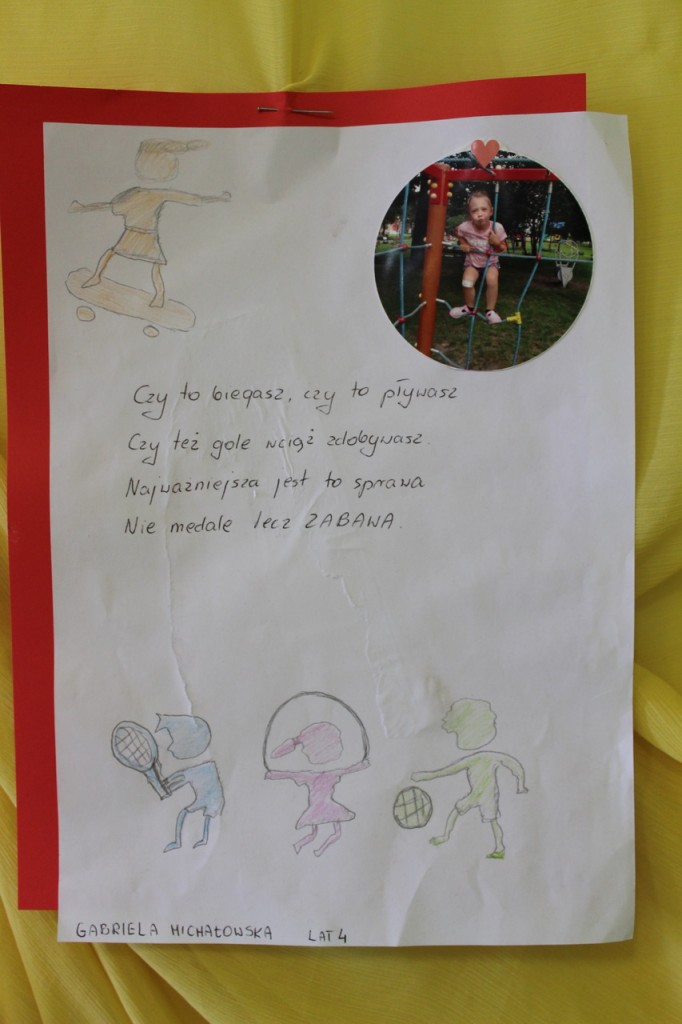 Czy to biegasz, czy to pływasz
Czy też gole wciąż zdobywasz.
Najwazniejsza jest to sprawa
Nie medale lecz ZABAWA.
GABRIELA MICHAŁOWSKA LAT 4